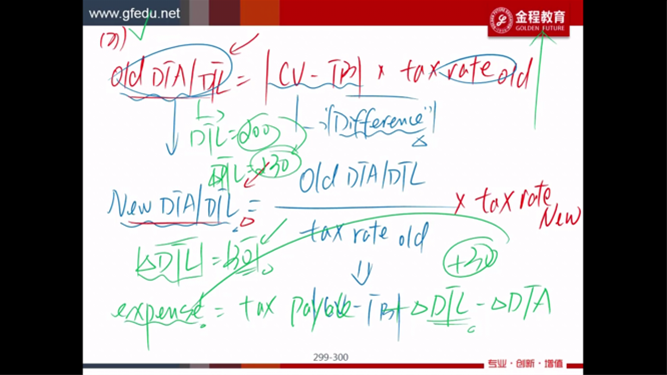 www.gfedu.net
金程教育
GOLDEN FUTURE
(2)
Old DTA/DTL = |CV - TB| × tax rate old
DTL = 200
|Difference|
DTL = 230
Old DTA/DTL
New DTA/DTL = × tax rate New
tax rate old
ΔDTL = 30
+30
expense = tax payable + ΔDTL - ΔDTA
299-300
专业·创新·增值